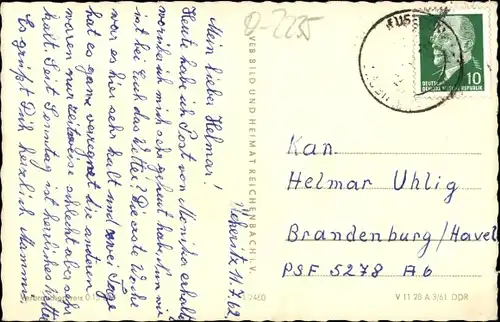 Q-2235
Mein lieber Helmar!
Heute habe ich Post von Monika erhalten
worüber ich mich sehr gefreut habe. Nun wie
ist bei Euch das Wetter? Die erste Woche
war es hier sehr kalt und zwei Tage
hat es ganz verregnet die anderen
waren nur zeitweise schlecht aber sehr
kalt. Seit Sonntag ist herrliches Wetter
Es grüßt Dich herzlich Mammi
11.7.62
VEB BILD UND HEIMAT REICHENBACH i. V.
DEUTSCHE
DEMOKRATISCHE REPUBLIK
10
An:
Helmar Uhlig
Brandenburg/Havel
PSF 5278 A6
V 11 28 A 3/61 DDR